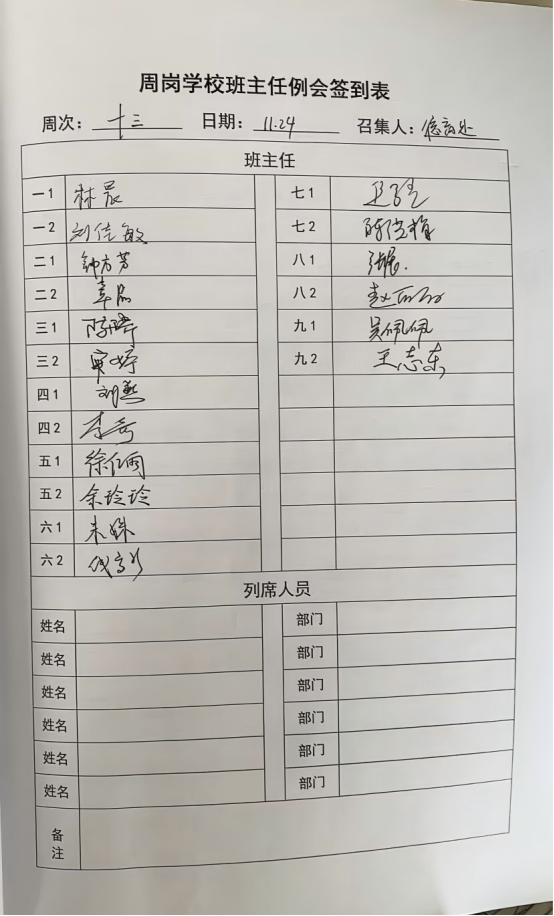 周岗学校班主任例会签到表
周次：十三 日期：11.24 召集人：德育处
班主任
一1 林晨 七1
一2 刘佳敏 七2
二1 钟方芳 八1
二2 章胤 八2
三1 陈婷 九1 吴佩佩
三2 窦婷 九2 王志东
四1 刘燕
四2 李奇
五1 徐仁雨
五2 余玲玲
六1 朱姝
六2
列席人员
姓名 部门
姓名 部门
姓名 部门
姓名 部门
姓名 部门
姓名 部门
备注